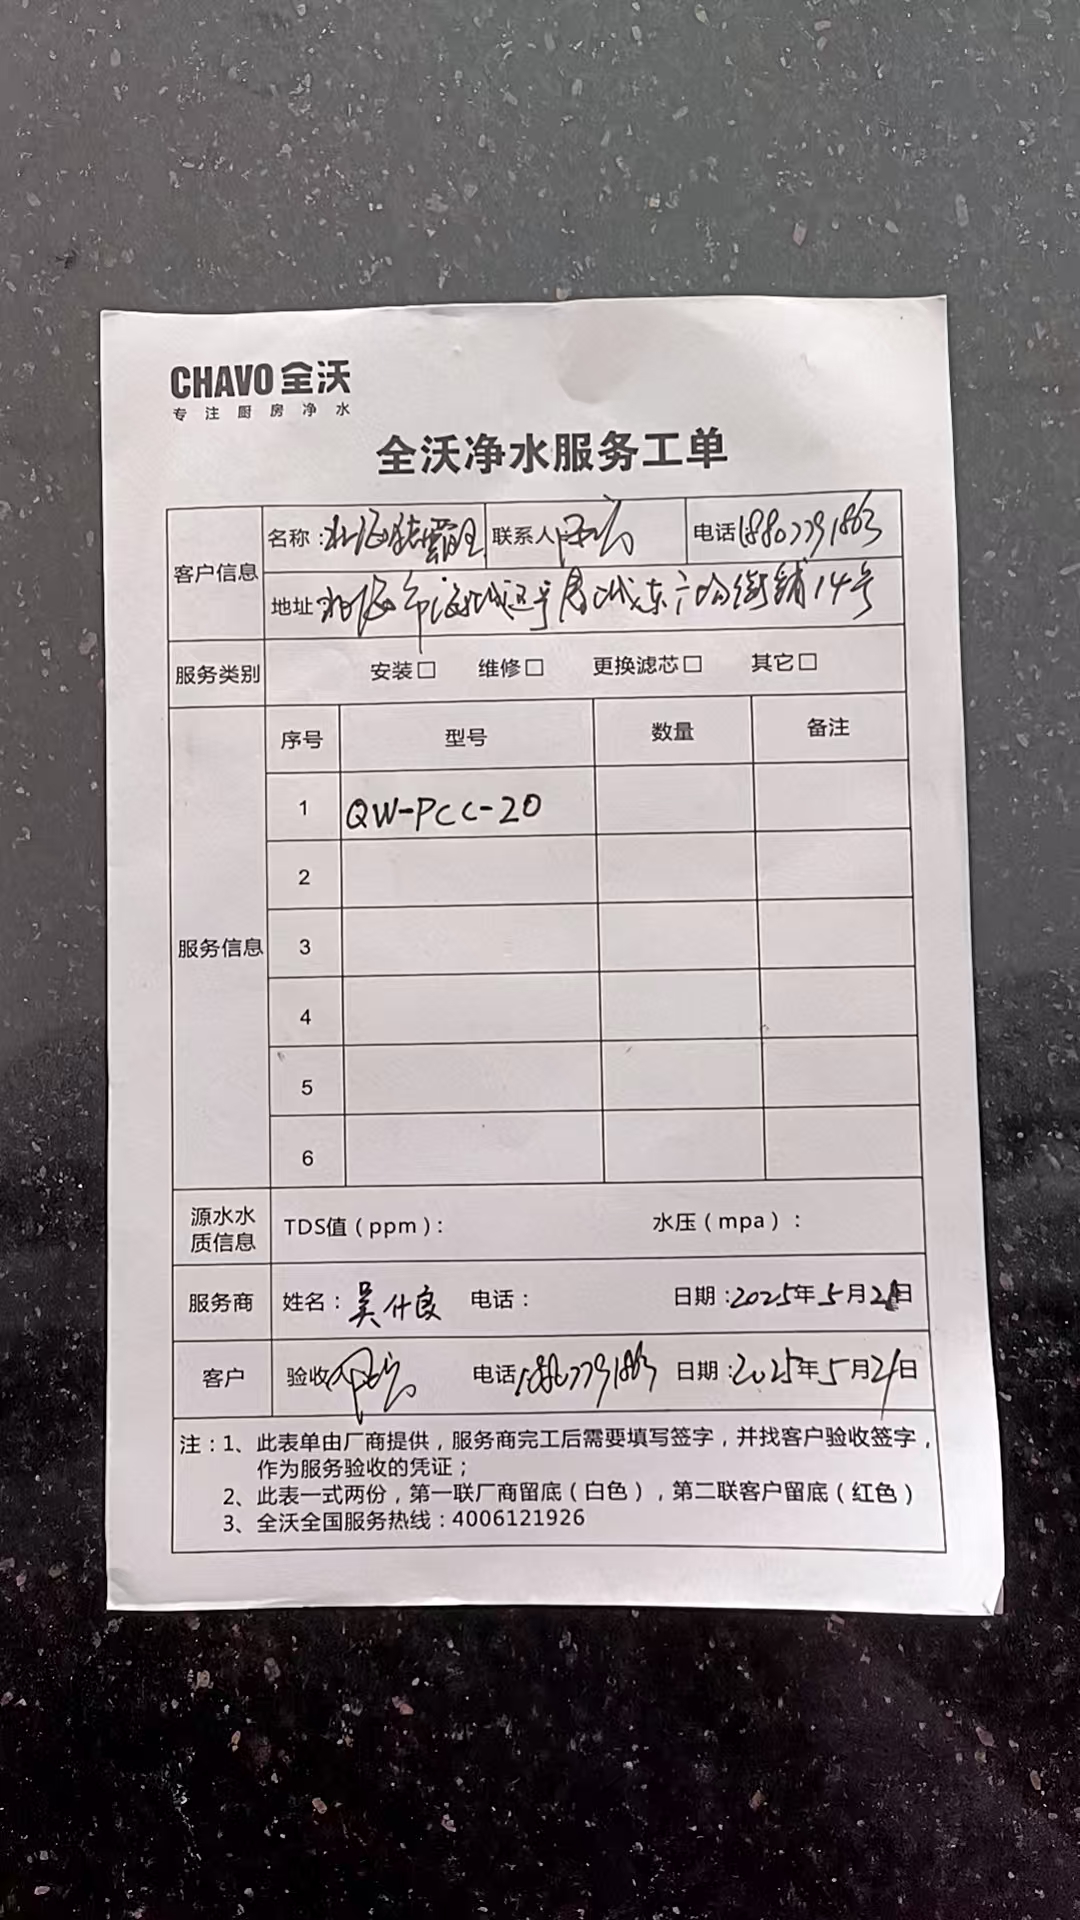 CHAVO 全沃
专注厨房净水
全沃净水服务工单
客户信息
名称：北海 联系人 电话18807791863
地址 北海市海城区 街铺14号
服务类别 安装□ 维修□ 更换滤芯□ 其它□
服务信息
序号 型号 数量 备注
1 QW-PCC-20
2
3
4
5
6
源水水质信息 TDS值（ppm）： 水压（mpa）：
服务商 姓名：吴什良 电话： 日期：2025年5月21日
客户 验收 电话18807791863 日期：2025年5月21日
注：1、此表单由厂商提供，服务商完工后需要填写签字，并找客户验收签字，
作为服务验收的凭证；
2、此表一式两份，第一联厂商留底（白色），第二联客户留底（红色）
3、全沃全国服务热线：4006121926